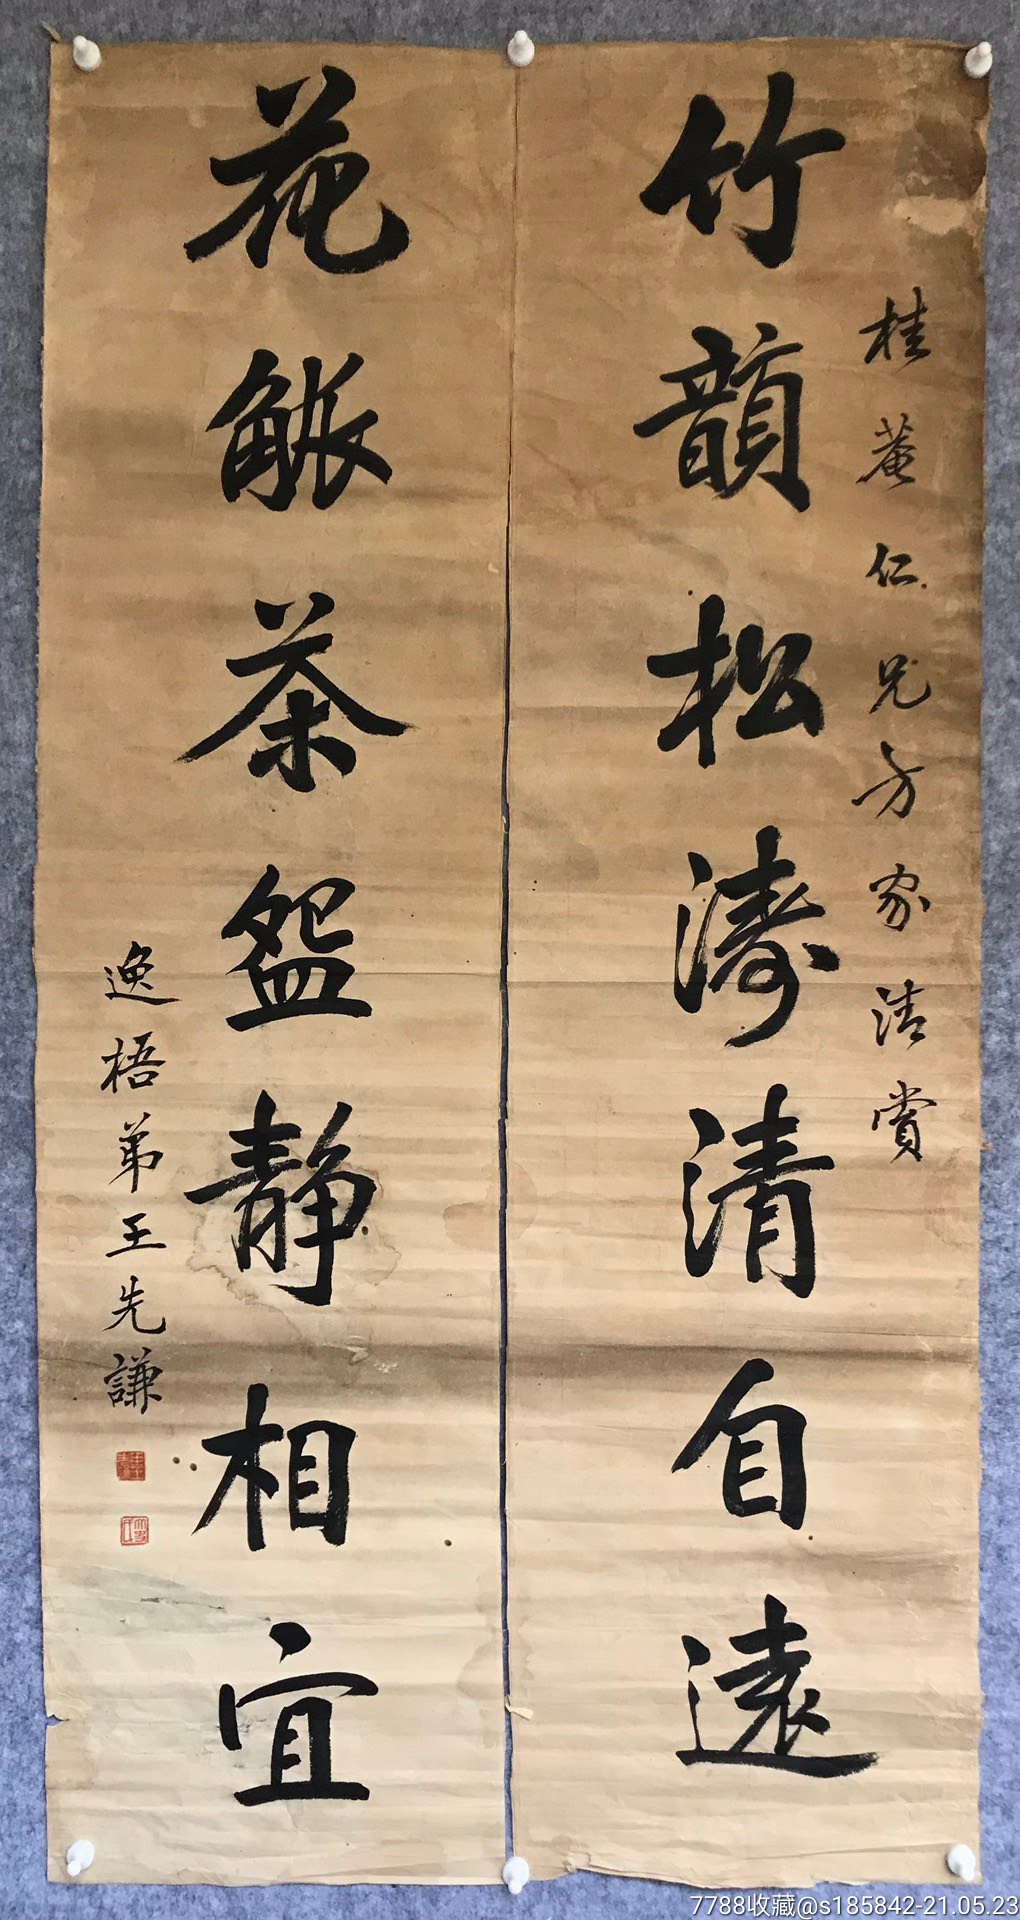 桂菴仁兄方家清賞
竹韻松濤清自遠
花茶盌靜相宜
逸梧弟王先謙
7788收藏@s185842-21.05.23